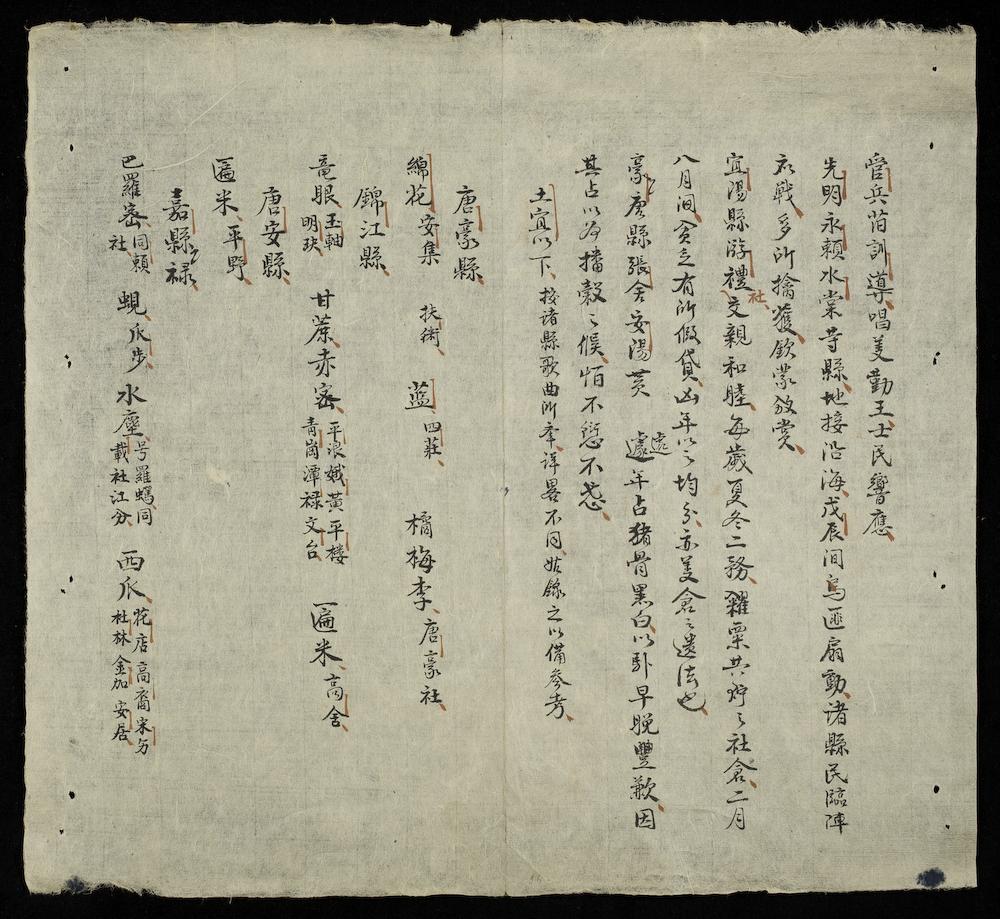 管兵范訓導唱美勤王士民響應
先明永賴水棠等縣地接沿海戊辰间烏匪扇動诸縣民臨陣
衣戦多所擒獲欽蒙
宜陽縣游禮社交親和睦每歲夏冬二務糴粟共貯之社倉二月
八月间貧乏有所假貸凶年以之均分亦美倉之遗法也
豪唐縣張舍安陽黄處遞年占猪骨黑白以卧早晚豐歉因
其占以为播穀之候恒不愆不忒
土宜以下按诸縣歌曲所本詳畧不同姑錄之以備參考
唐豪縣
綿花安集 扶衛 藍四莊 橘梅李唐豪社
錦江縣
竜眼玉軸明玦 甘蔗赤密平浪娥黄平楼青崗潭禄文台 匾米高舍
唐安縣
匾米平野
嘉禄縣
巴羅密同賴社 蜆爪步 水塵号羅蟡同載社江分 西瓜花店高裔米匀杜林金加安居